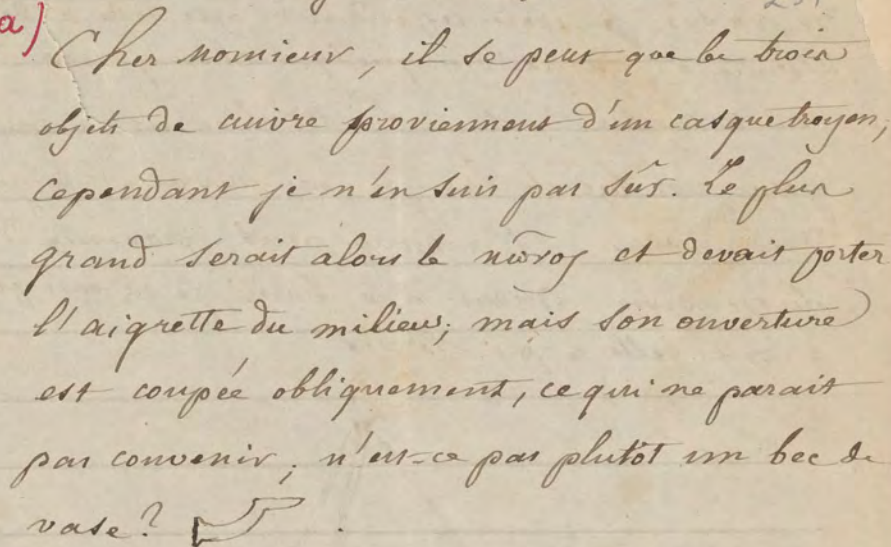 a)
Cher monsieur, il se peut que les trois
objets de cuivre proviennent d'un casque troyen;
cependant je n'en suis pas sûr. Le plus
grand serait alors le et devait porter
l'aigrette du milieu; mais son ouverture
est coupée obliquement, ce qui ne parait
pas convenir; n'est-ce pas plutôt un bec de
vase?